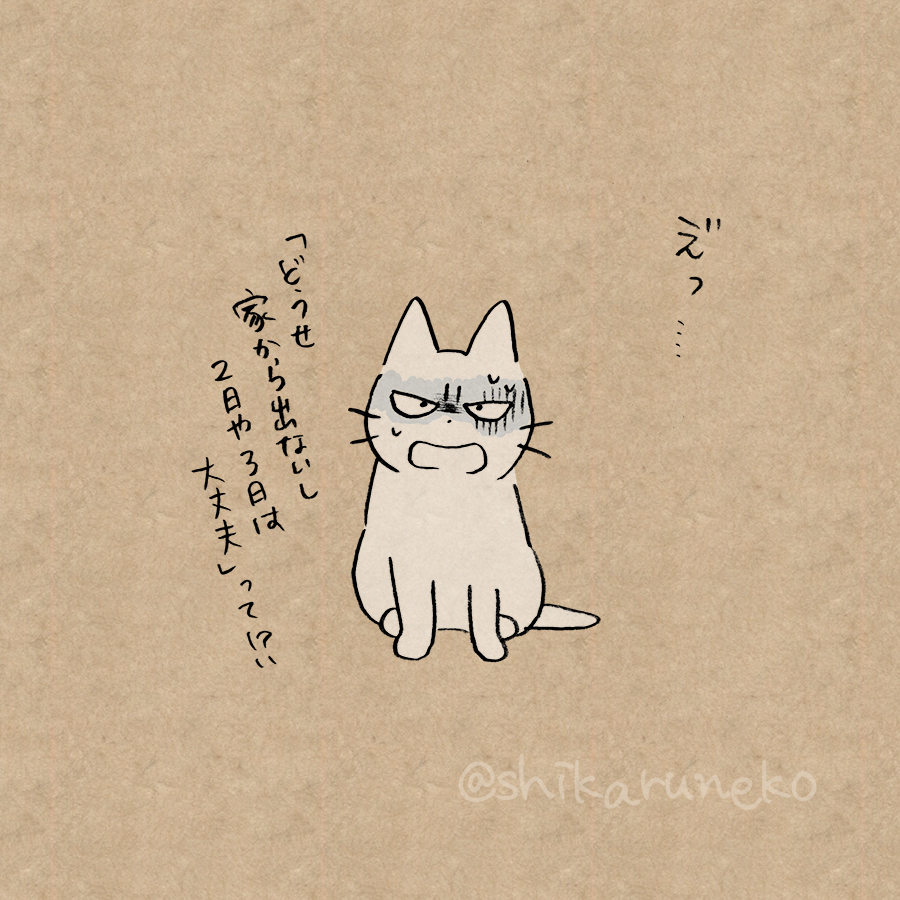 え゛っ…
「どうせ
家から出ないし
2日や3日は
大丈夫」って!?
@shikaruneko